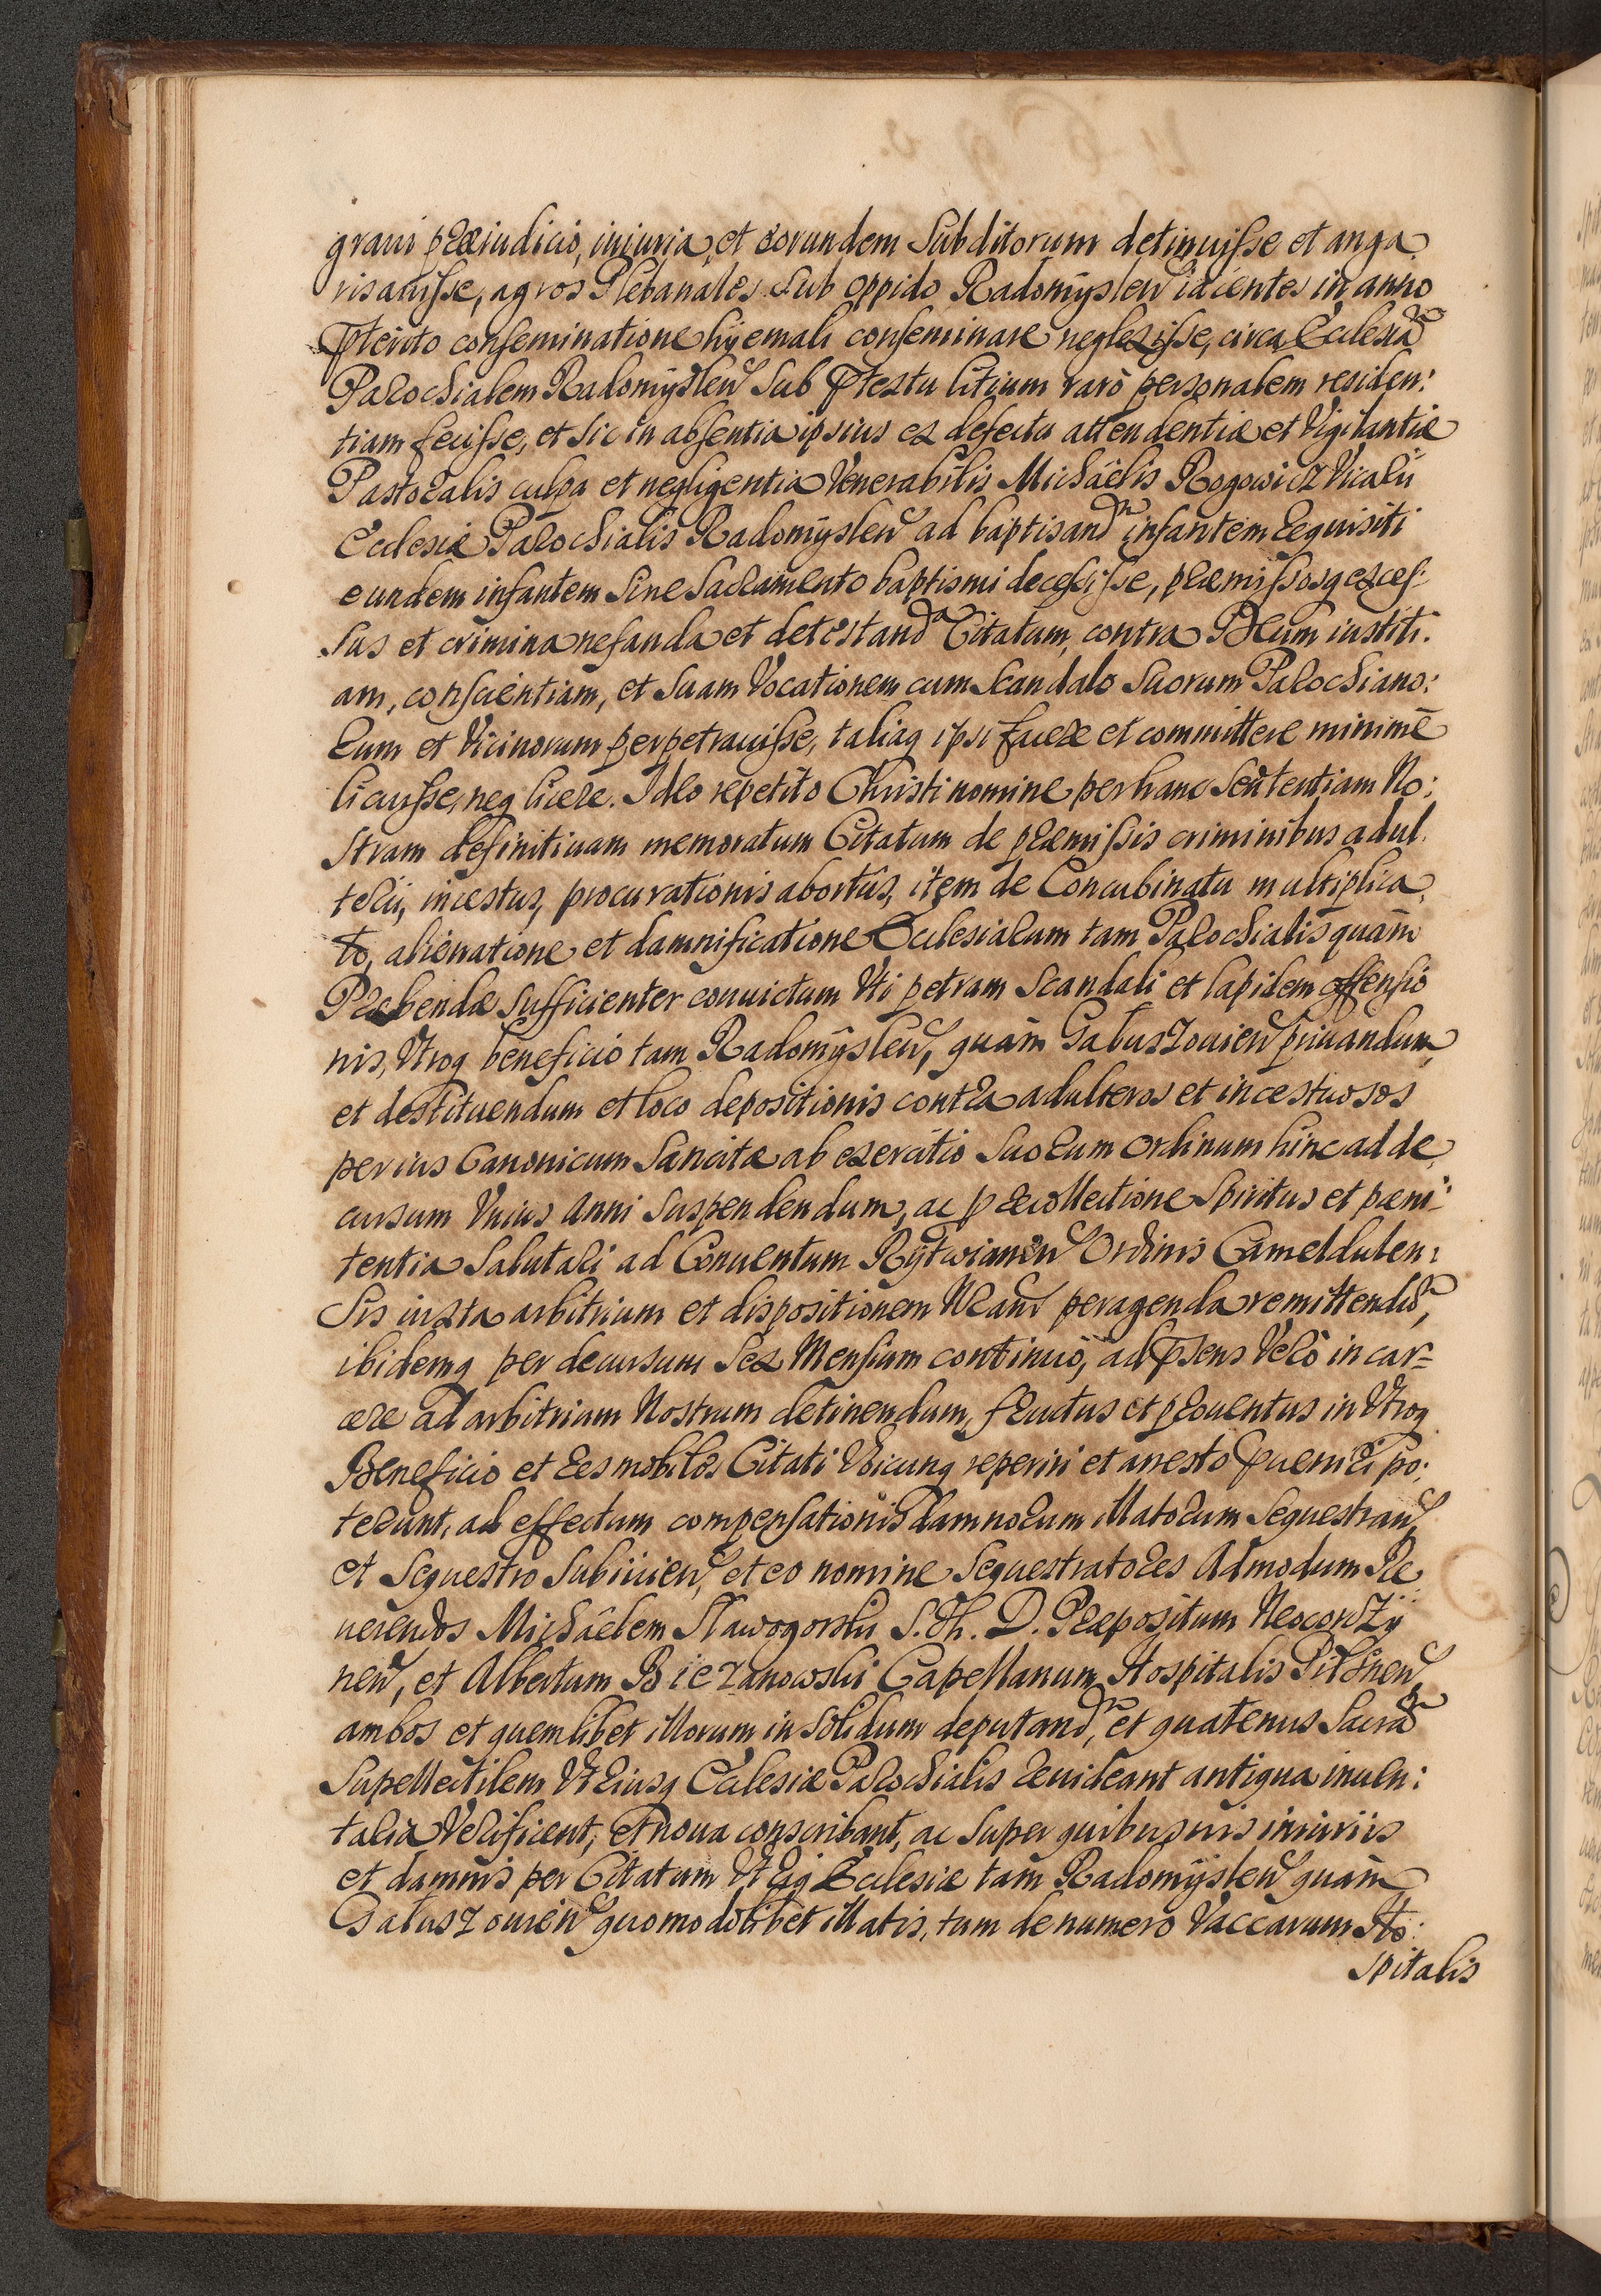 graui præiudicio, iniuria, et eorundem Subditorum detinuisse et anga
risauisse, agros Plebanales sub oppido Radomÿslen iacentes in anno
Pterito conseminatione hÿemali conseminare neglexisse, circa Ecclesiã
Parochialem Radomÿslen sub Ptextu litium rarò personalem residen:
tiam fecisse, et sic in absentia ipsius ex defectu attendentiæ et Vigilantiæ
Pastoralis culpa et negligentia Venerabilis Michaëlis Rogowicz Vicarii
Ecclesiæ Parochialis Radomÿslen ad baptisand infantem requisiti
eundem infantem sine Sacramento baptismi decessisse, præmissosq exces:
sus et crimina nefanda et detestand Citatum, contra Deum iustiti.
am, conscientiam, et suam Vocationem cum scandalo suorum Parochiano:
rum et Vicinorum perpetrauisse, taliaq ipsi facere et committere minimè
licuisse, neq licere. Ideo repetito Christi nomine per hanc Sententiam No:
stram definitiuam memoratum Citatum de præmissis criminibus adul
terii, incestus, procurationis abortûs, item de Concubinatu multiplica
to, alienatione et damnificatione Ecclesiarum tam Parochialis quàm
Præbendæ sufficienter conuictum Vti petram scandali et lapidem offensio
nis, Vtroq beneficio tam Radomÿslen, quàm Gabuszouien priuandum
et destituendum et loco depositionis contra adulteros et incestuosos
per ius Canonicum sancitæ ab exercitio suorum Ordinum hinc ad de
cursum Vnius Anni suspendendum, ac p recollectione Spiritus et pæni:
tentia salutari ad Conuentum Rÿtwianen Ordinis Cameldulen:
sis iuxta arbitrium et dispositionem Nram peragenda remittend,
ibidemq per decursum sex Mensium continuò, ad Psens Verò in car=
cere ad arbitrium Nostrum detinendum, fructus et prouentus in Vtroq
Beneficio et res mobiles Citati Vbicunq reperiri et arresto queri po:
terunt, ad effectum compensationis damnorum illatorum sequestran
et sequestro subiicien, et eo nomine Sequestratores Admodum Re
uerendos Michaëlem Nawogorski S. Th. D. Præpositum Neocordzÿ
nen, et Albertum Biezanowski Capellanum Hospitalis Pilsnen
ambos et quemlibet illorum in solidum deputand, et quatenus sacrã
supellectilem Vtriusq Ecclesiæ Parochialis reuideant antiqua inuen:
taria Verificent, et noua conscribant, ac super quibusuis iniuriis
et damnis per Citatum Vtriq Ecclesiæ tam Radomÿslen quàm
Gabuszouien quomodolibet illatis, tum de numero Vaccarum Ho:
spitalis